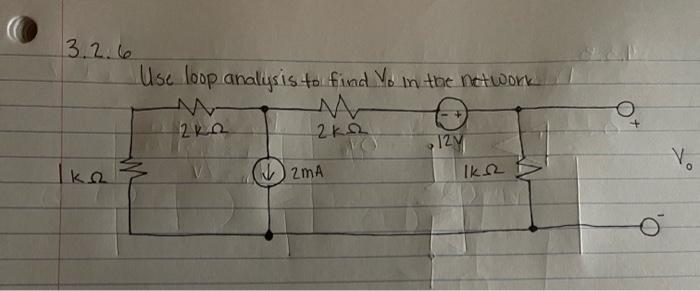 3.2.6
Use loop analysis to find Vo in the network
2kΩ
2kΩ
- +
12V
+
1kΩ
2mA
1kΩ
Vo
-